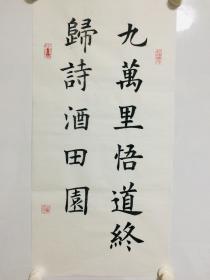 九萬里悟道終
歸詩酒田園